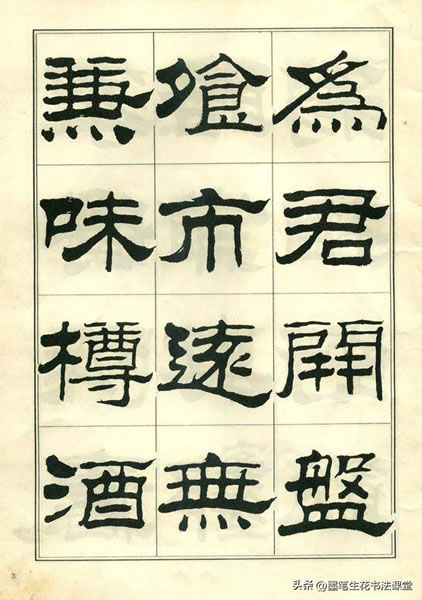 爲君開盤
飧市遠無
兼味樽酒
3
头条 @墨笔生花书法课堂